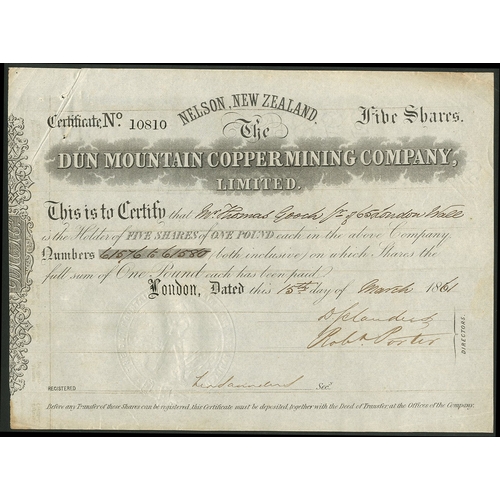 NELSON, NEW ZEALAND.
Certificate, No 10810
Five Shares.
The
DUN MOUNTAIN COPPER MINING COMPANY,
LIMITED.
This is to Certify that Mr Thomas Gooch Jr of 63 London Wall
is the Holder of FIVE SHARES of ONE POUND each in the above Company
Numbers 61576 to 61580 (both inclusive) on which Shares the
full sum of One Pound each has been paid.
London, Dated this 15th day of March 1861
Robt Porter
DIRECTORS.
REGISTERED
Sec.
Before any Transfer of these Shares can be registered, this Certificate must be deposited, together with the Deed of Transfer at the Offices of the Company.